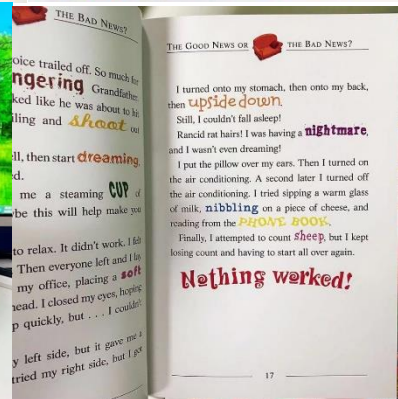 THE BAD NEWS?
oice trailed off. So much for
ngering Grandfather
ked like he was about to hi
ling and shoot out
ll, then start dreaming.
d.
me a steaming CUP of
be this will help make you
to relax. It didn't work. I felt
Then everyone left and I lay
my office, placing a soft
head. I closed my eyes, hoping
p quickly, but . . . I couldn't
y left side, but it gave me a
tried my right side, but I got
THE GOOD NEWS OR THE BAD NEWS?
I turned onto my stomach, then onto my back,
then upside down.
Still, I couldn't fall asleep!
Rancid rat hairs! I was having a nightmare,
and I wasn't even dreaming!
I put the pillow over my ears. Then I turned on
the air conditioning. A second later I turned off
the air conditioning. I tried sipping a warm glass
of milk, nibbling on a piece of cheese, and
reading from the PHONE BOOK.
Finally, I attempted to count sheep, but I kept
losing count and having to start all over again.
Nothing worked!
17